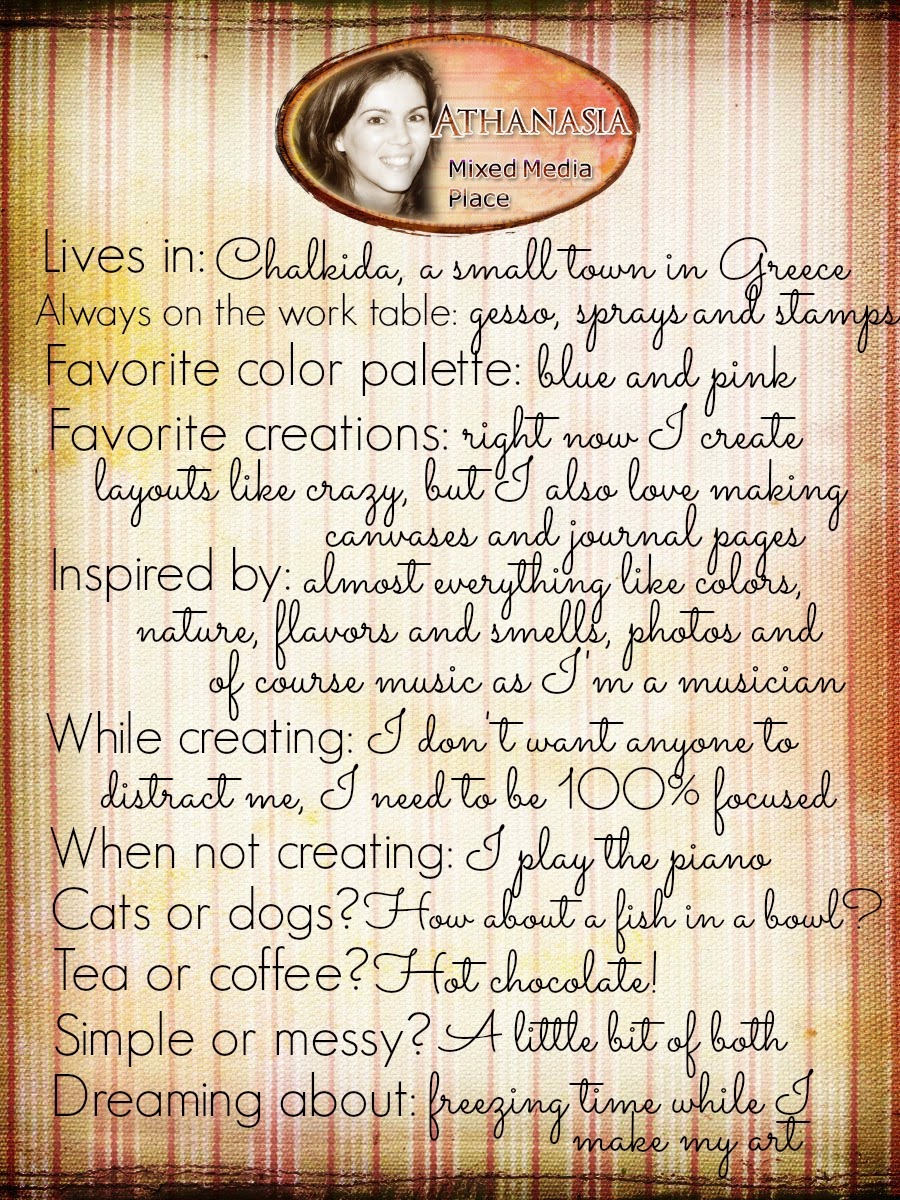 ATHANASIA
Mixed Media
Place
Lives in: Chalkida, a small town in Greece
Always on the work table: gesso, sprays and stamps
Favorite color palette: blue and pink
Favorite creations: right now I create
layouts like crazy, but I also love making
canvases and journal pages
Inspired by: almost everything like colors,
nature, flavors and smells, photos and
of course music as I'm a musician
While creating: I don't want anyone to
distract me, I need to be 100% focused
When not creating: I play the piano
Cats or dogs? How about a fish in a bowl?
Tea or coffee? Hot chocolate!
Simple or messy? A little bit of both
Dreaming about: freezing time while I
make my art